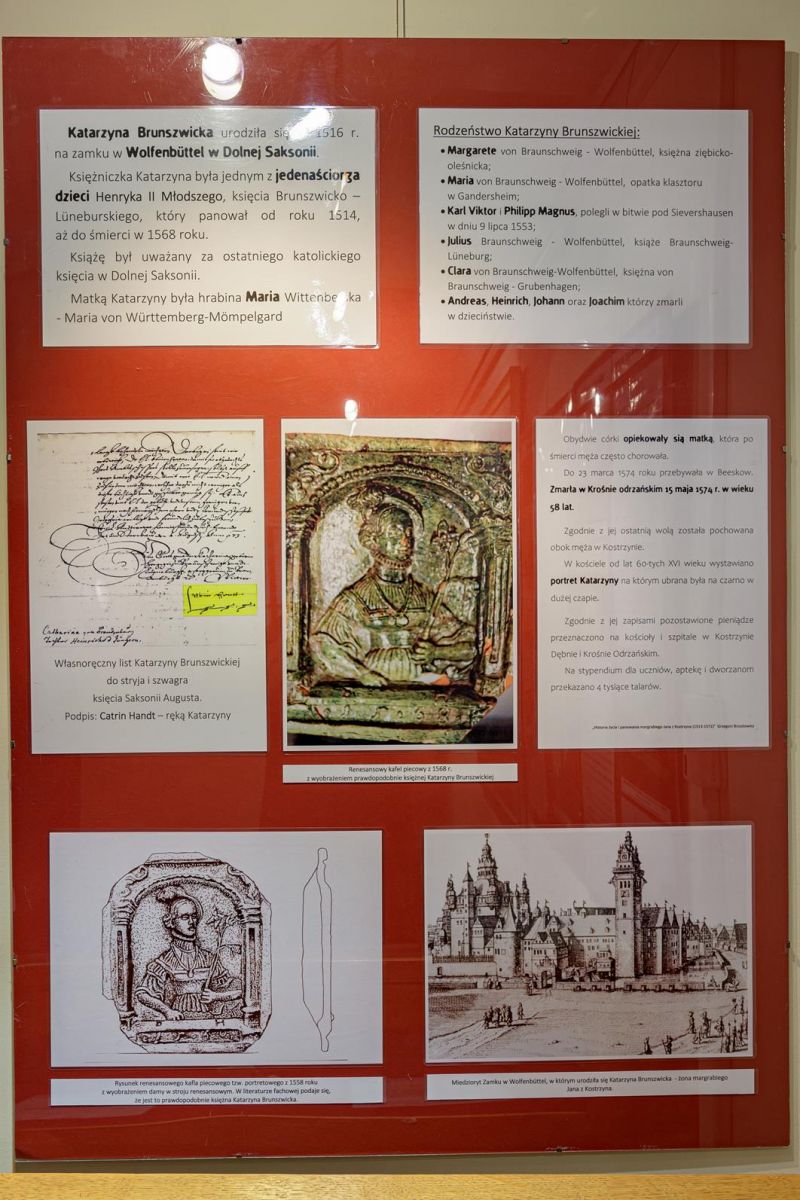 Katarzyna Brunszwicka urodziła się 1516 r.
na zamku w Wolfenbüttel w Dolnej Saksonii.
Księżniczka Katarzyna była jednym z jedenaściorga
dzieci Henryka II Młodszego, księcia Brunszwicko –
Lüneburskiego, który panował od roku 1514,
aż do śmierci w 1568 roku.
Książę był uważany za ostatniego katolickiego
księcia w Dolnej Saksonii.
Matką Katarzyny była hrabina Maria Wittenberska
- Maria von Württemberg-Mömpelgard
Rodzeństwo Katarzyny Brunszwickiej:
• Margarete von Braunschweig - Wolfenbüttel, księżna ziębicko-
oleśnicka;
• Maria von Braunschweig - Wolfenbüttel, opatka klasztoru
w Gandersheim;
• Karl Viktor i Philipp Magnus, polegli w bitwie pod Sievershausen
w dniu 9 lipca 1553;
• Julius Braunschweig - Wolfenbüttel, książe Braunschweig-
Lüneburg;
• Clara von Braunschweig-Wolfenbüttel, księżna von
Braunschweig - Grubenhagen;
• Andreas, Heinrich, Johann oraz Joachim którzy zmarli
w dzieciństwie.
Własnoręczny list Katarzyny Brunszwickiej
do stryja i szwagra
księcia Saksonii Augusta.
Podpis: Catrin Handt – ręką Katarzyny
Renesansowy kafel piecowy z 1568 r.
z wyobrażeniem prawdopodobnie księżnej Katarzyny Brunszwickiej
Obydwie córki opiekowały sią matką, która po
śmierci męża często chorowała.
Do 23 marca 1574 roku przebywała w Beeskow.
Zmarła w Krośnie odrzańskim 15 maja 1574 r. w wieku
58 lat.
Zgodnie z jej ostatnią wolą została pochowana
obok męża w Kostrzynie.
W kościele od lat 60-tych XVI wieku wystawiano
portret Katarzyny na którym ubrana była na czarno w
dużej czapie.
Zgodnie z jej zapisami pozostawione pieniądze
przeznaczono na kościoły i szpitale w Kostrzynie
Dębnie i Krośnie Odrzańskim.
Na stypendium dla uczniów, aptekę i dworzanom
przekazano 4 tysiące talarów.
B H
Rysunek renesansowego kafla piecowego tzw. portretowego z 1558 roku
z wyobrażeniem damy w stroju renesansowym. W literaturze fachowej podaje się,
że jest to prawdopodobnie księżna Katarzyna Brunszwicka.
Miedzioryt Zamku w Wolfenbüttel, w którym urodziła się Katarzyna Brunszwicka - żona margrabiego
Jana z Kostrzyna.